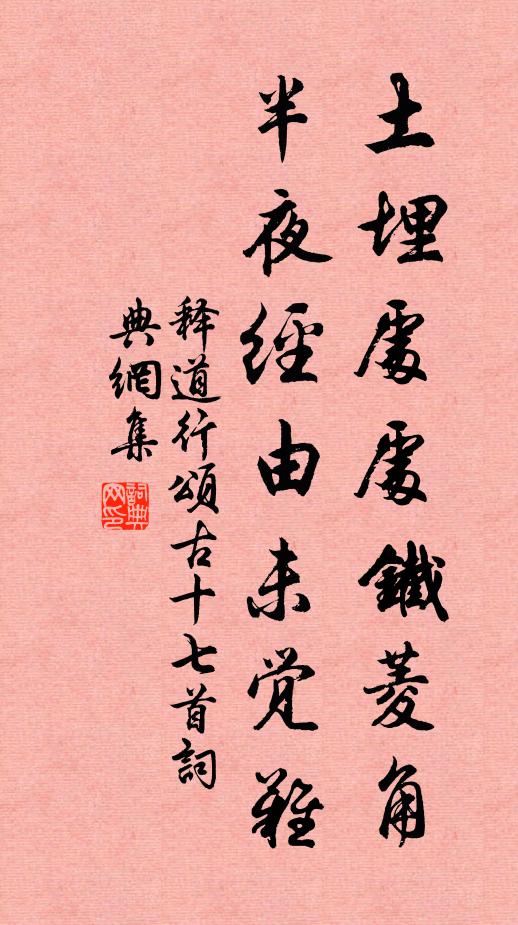 土埋處處鐵菱角
半夜經由未覺難
释道行頌古十七首詞
典網集
詞典
网印